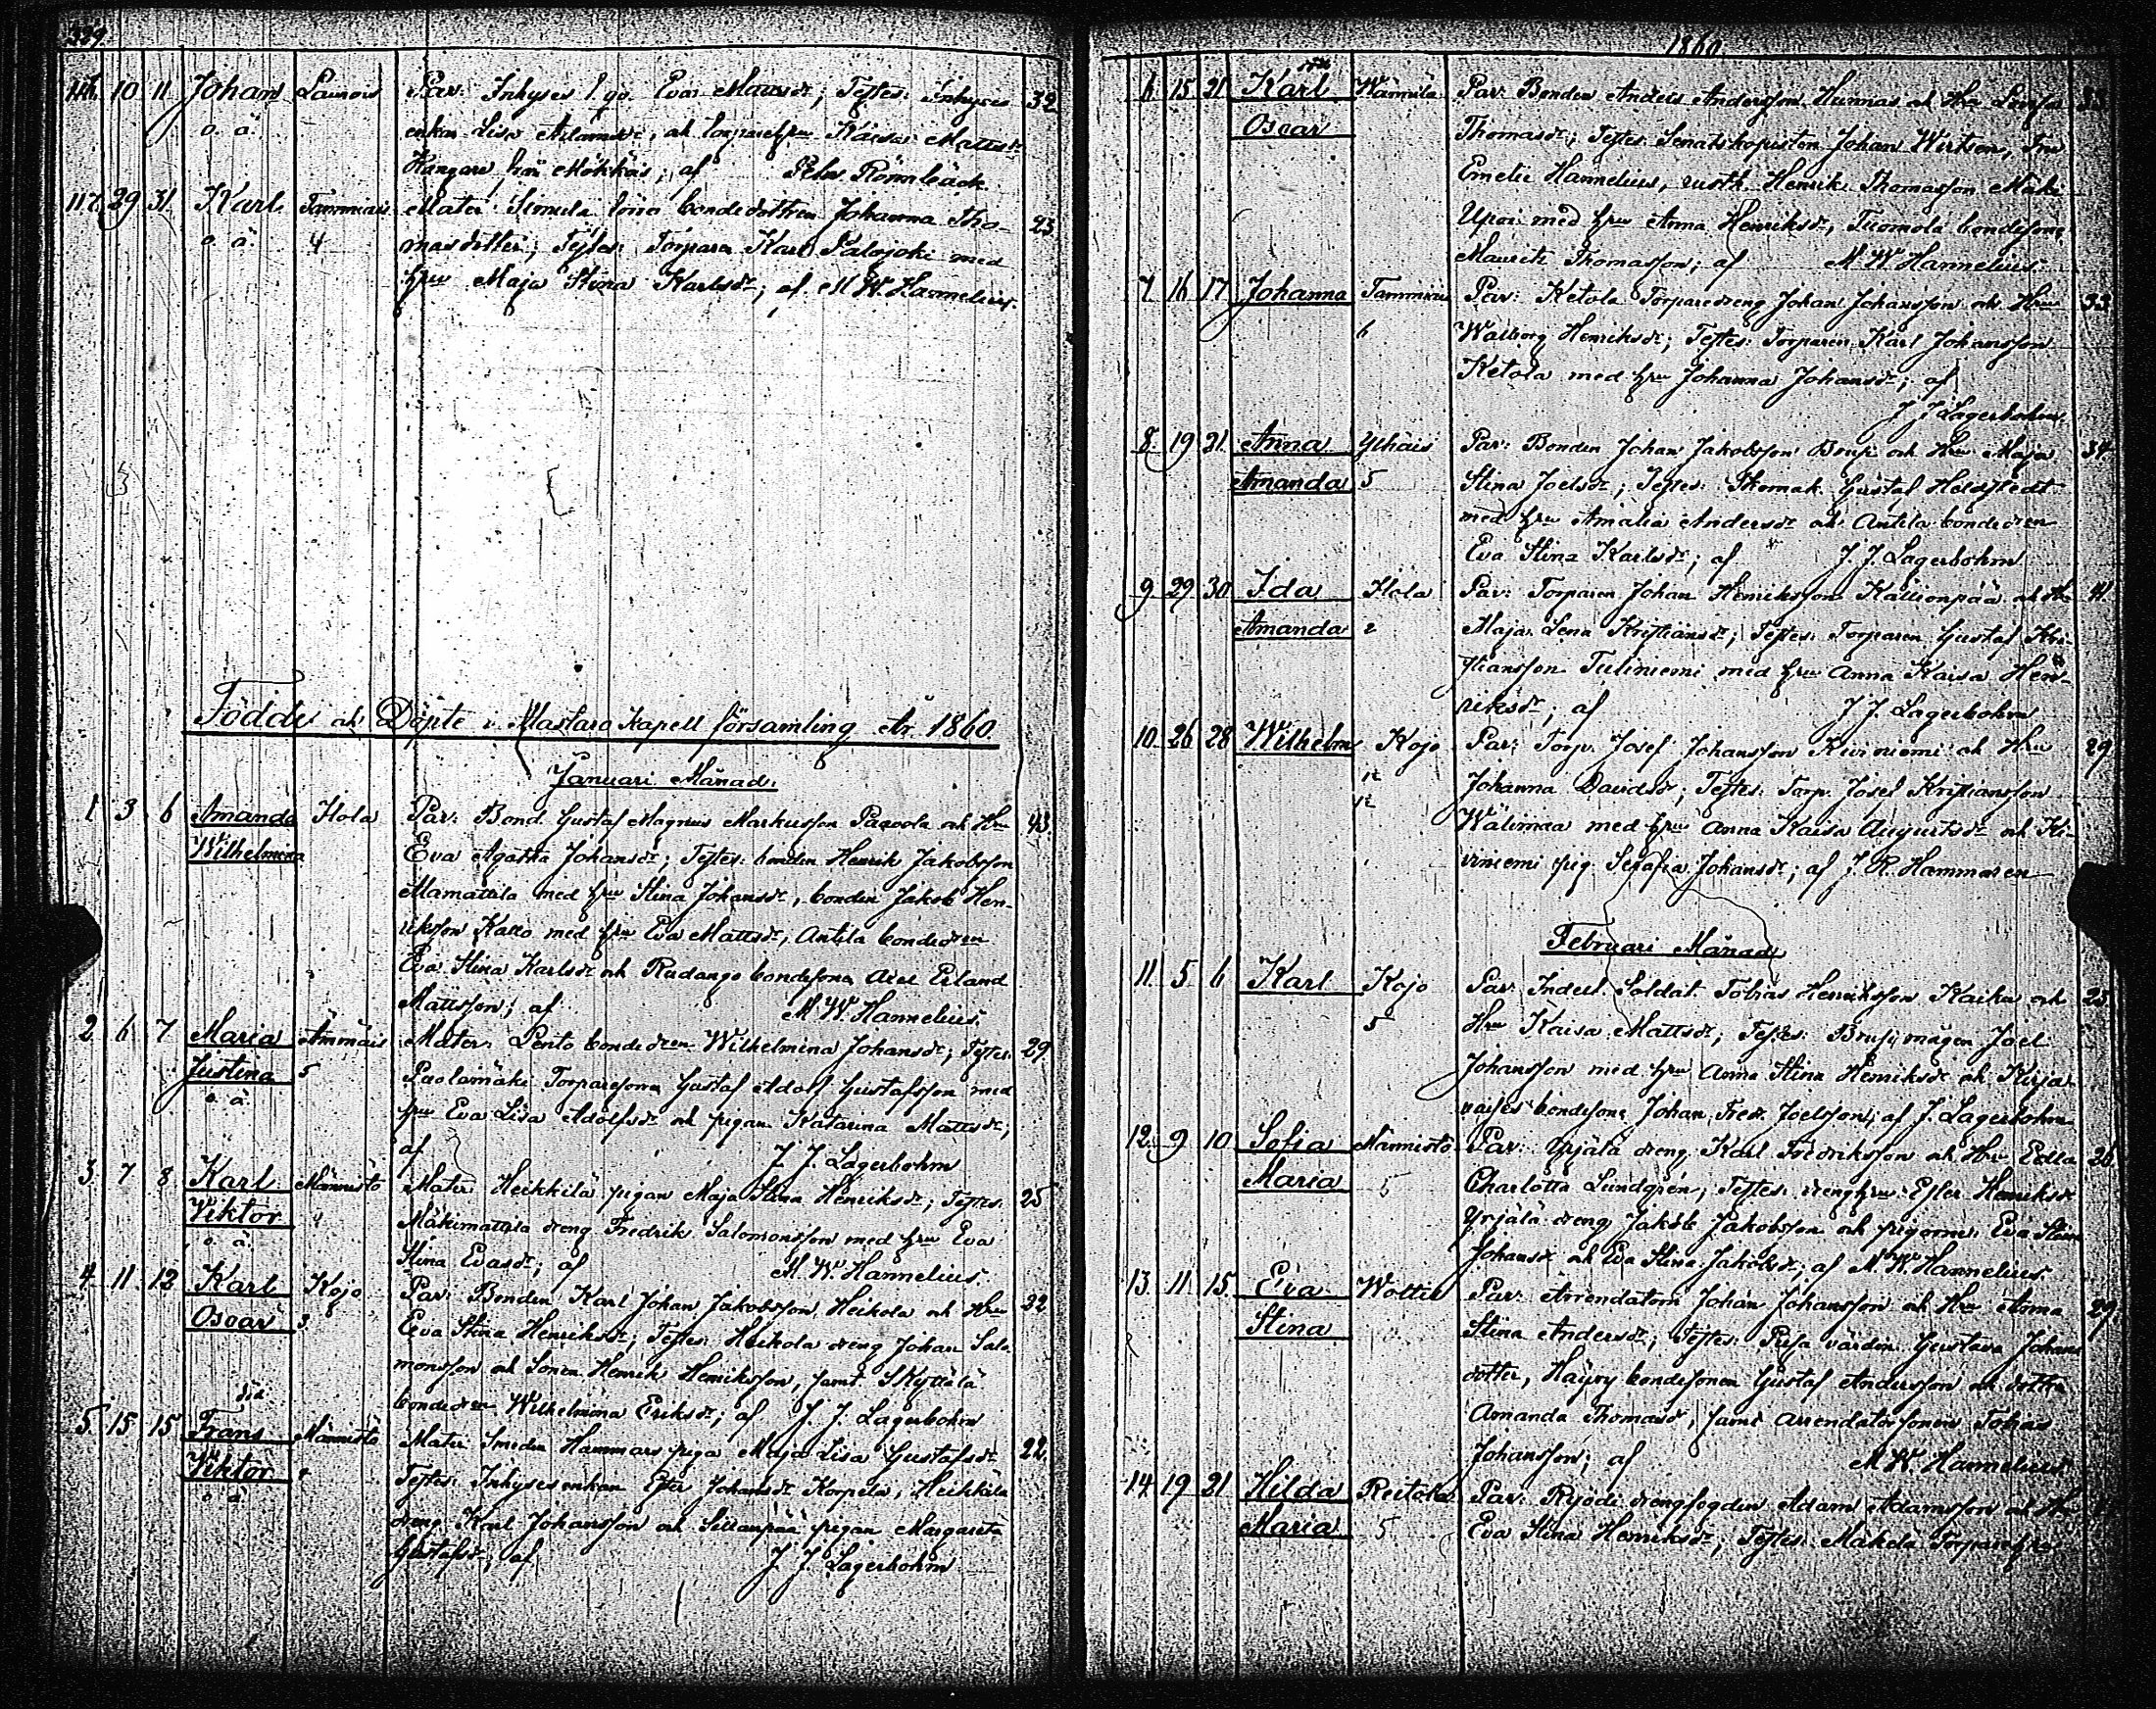 329.
116. 10 11 Johan Laurois Par: Inhyses Eva Mattsdr; Testes: Inhyses 32
o. ä. enkan Lisa Adamsdr, och torparehru Kaisa Mattsdr
Kangare från Mökköis; af Petr. Rönnbäck
117. 29 31 Karl Tammiais Mater: Simula bonde dottren Johanna Tho- 23
o. ä. 4 masdotter; Testes: Torparen Karl Palojoki med
hru Maja Stina Karlsdr; af M W. Hannelius.
Födde och Döpte i Mastara Kapell församling År 1860
Januari Månad.
1 3 6 Amanda Hola Par: Bond. Gustaf Magnus Markusson Paavola och Hru 43.
Wilhelmina Eva Agatha Johansdr; Testes: bonden Henrik Jakobsson
Mamattila med hru Stina Johansdr, bonden Jakob Hen-
riksson Katto med hru Eva Mattsdr, Antila bondedren
Eva Stina Karlsdr och Rudango bondesonen Axel Erland
Mattsson; af M. W. Hannelius.
2 6 7 Maria Ämmäis Mater: Pento bondedren Wilhelmina Johansdr; Testes: 29
Justina 5 Paolamäki Torparesonen Gustaf Adolf Gustafsson med
o. ä. hru Eva Lisa Adolfsdr och pigan Katarina Mattsdr;
af J. J. Lagerbohm
3 7 8 Karl Männistö Mater: Heikkilä pigan Maja Stina Henriksdr; Testes: 25
Viktor 4 Mäkimattila dreng Fredrik Salomonsson med hru Eva
o. ä. Stina Evasdr; af M. W. Hannelius.
4 11 12 Karl Kojo Par: Bonden Karl Johan Jakobsson Heikola och Hru 22
Oscar 3 Eva Stina Henriksdr; Testes: Heikola dreng Johan Salo-
monsson och Sonen Henrik Henriksson, samt Skyttälä
bondedren Wilhelmina Eriksdr; af J. J. Lagerbohm
5 15 15 Frans Männistö Mater: Smeden Hammars piga Maja Lisa Gustafsdr 22
Viktor Testes: Inhyses enkan Ester Johansdr Korpela, Heikkilä
o. ä. dreng Karl Johansson och Sillanpää pigan Margareta
Gustafsdr; af J. J. Lagerbohm
1860
6 15 21 Karl Hämmilä Par: Bonden Anders Andersson Hunnas och Hru Lovisa 33
Oscar Thomasdr; Testes: Senatskopisten Johan Wirtsen, Fru
Emelie Hannelius, rusth. Henrik Thomasson Mäki
Upoi med hru Anna Henriksdr, Tuomola bondesonen
Mauritz Thomasson; af M. W. Hannelius.
7 16 17 Johanna Tammiais Par: Ketola Torparedreng Johan Johansson och Hru 33
6 Walborg Henriksdr; Testes: Torparen Karl Johansson
Ketola med hru Johanna Johansdr; af
J J Lagerbohm.
8 19 21 Anna Yhäis Par: Bonden Johan Jakobsson Brusi och Hru Maja 34
Amanda 5 Stina Joelsdr; Testes: Skomak. Gustaf Heldstedt
med hru Amalia Andersdr och Antila bondedren
Eva Stina Karlsdr; af J. J. Lagerbohm
9 29 30 Ida Hola Par: Torparen Johan Henriksson Kallionpää och Hru 41.
Amanda 2 Maja Lena Kristiansdr; Testes: Torparen Gustaf Kri-
stiansson Tuliniemi med hru Anna Kaisa Hen-
riksdr; af J J. Lagerbohm
10 26 28 Wilhelm Kojo Par: Torp. Josef Johansson Kiviniemi och Hru 29
12 Johanna Davidsdr; Testes: Torp. Josef Kristiansson
12 Wälimaa med hru Anna Kaisa Augustsdr och Ki-
viniemi pig. Serafia Johansdr; af J. R. Hammaren
Februari Månad
11 5 6 Karl Kojo Par: Indelt. Soldat. Tobias Henriksson Kaiku och 25
5 Hru Kaisa Mattsdr; Testes: Brusi mågen Joel
Johansson med hru Anna Stina Henriksdr och Kirja-
vaises bondesonen Johan Fredr. Joelsson; af J. Lagerbohm
12. 9 10 Sofia Männistö Par: Yrjälä dreng Karl Fredriksson och Hru Edla 26
Maria 5 Charlotta Lundgrén; Testes: drenghru Ester Henriksdr
Yrjälä dreng Jakob Jakobsson och pigorne Eva Stina
Johansdr och Eva Stina Jakobsdr; af M. W. Hannelius.
13 11 15 Eva Woltti Par: Arrendatorn Johan Johansson och Hru Anna 29.
Stina Stina Andersdr; Testes: värdin Gustava Johans
dotter, Häyry bondesonen Gustaf Andersson och dottren
Amanda Thomasdr, samt arrendatorsonen Tobias
Johansson; af M W. Hannelius
14 19 21 Hilda Reitola Par: Ryödi drengfogden Adam Adamsson och Hru
Maria 5 Eva Stina Henriksdr; Testes: Mäkelä Torparehru